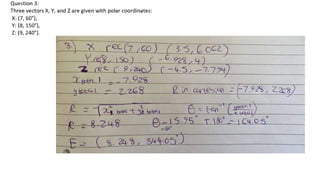 Question 3:
Three vectors X, Y, and Z are given with polar coordinates:
X: (7, 60°),
Y: (8, 150°),
Z: (9, 240°).
3) X rec(7,60) (3.5, 6.062)
Y rec(8,150) (-6.928, 4)
Z rec (9,240) (-4.5, -7.794)
x total = -7.928
y total = 2.268 R in cartesian = (-7.928, 2.268)
R = √x² total + y² total θ = tan⁻¹ (y total / x total)
R = 8.248 θ = 15.95° + 180° = 164.05°
E = (8.248, 344.05°)